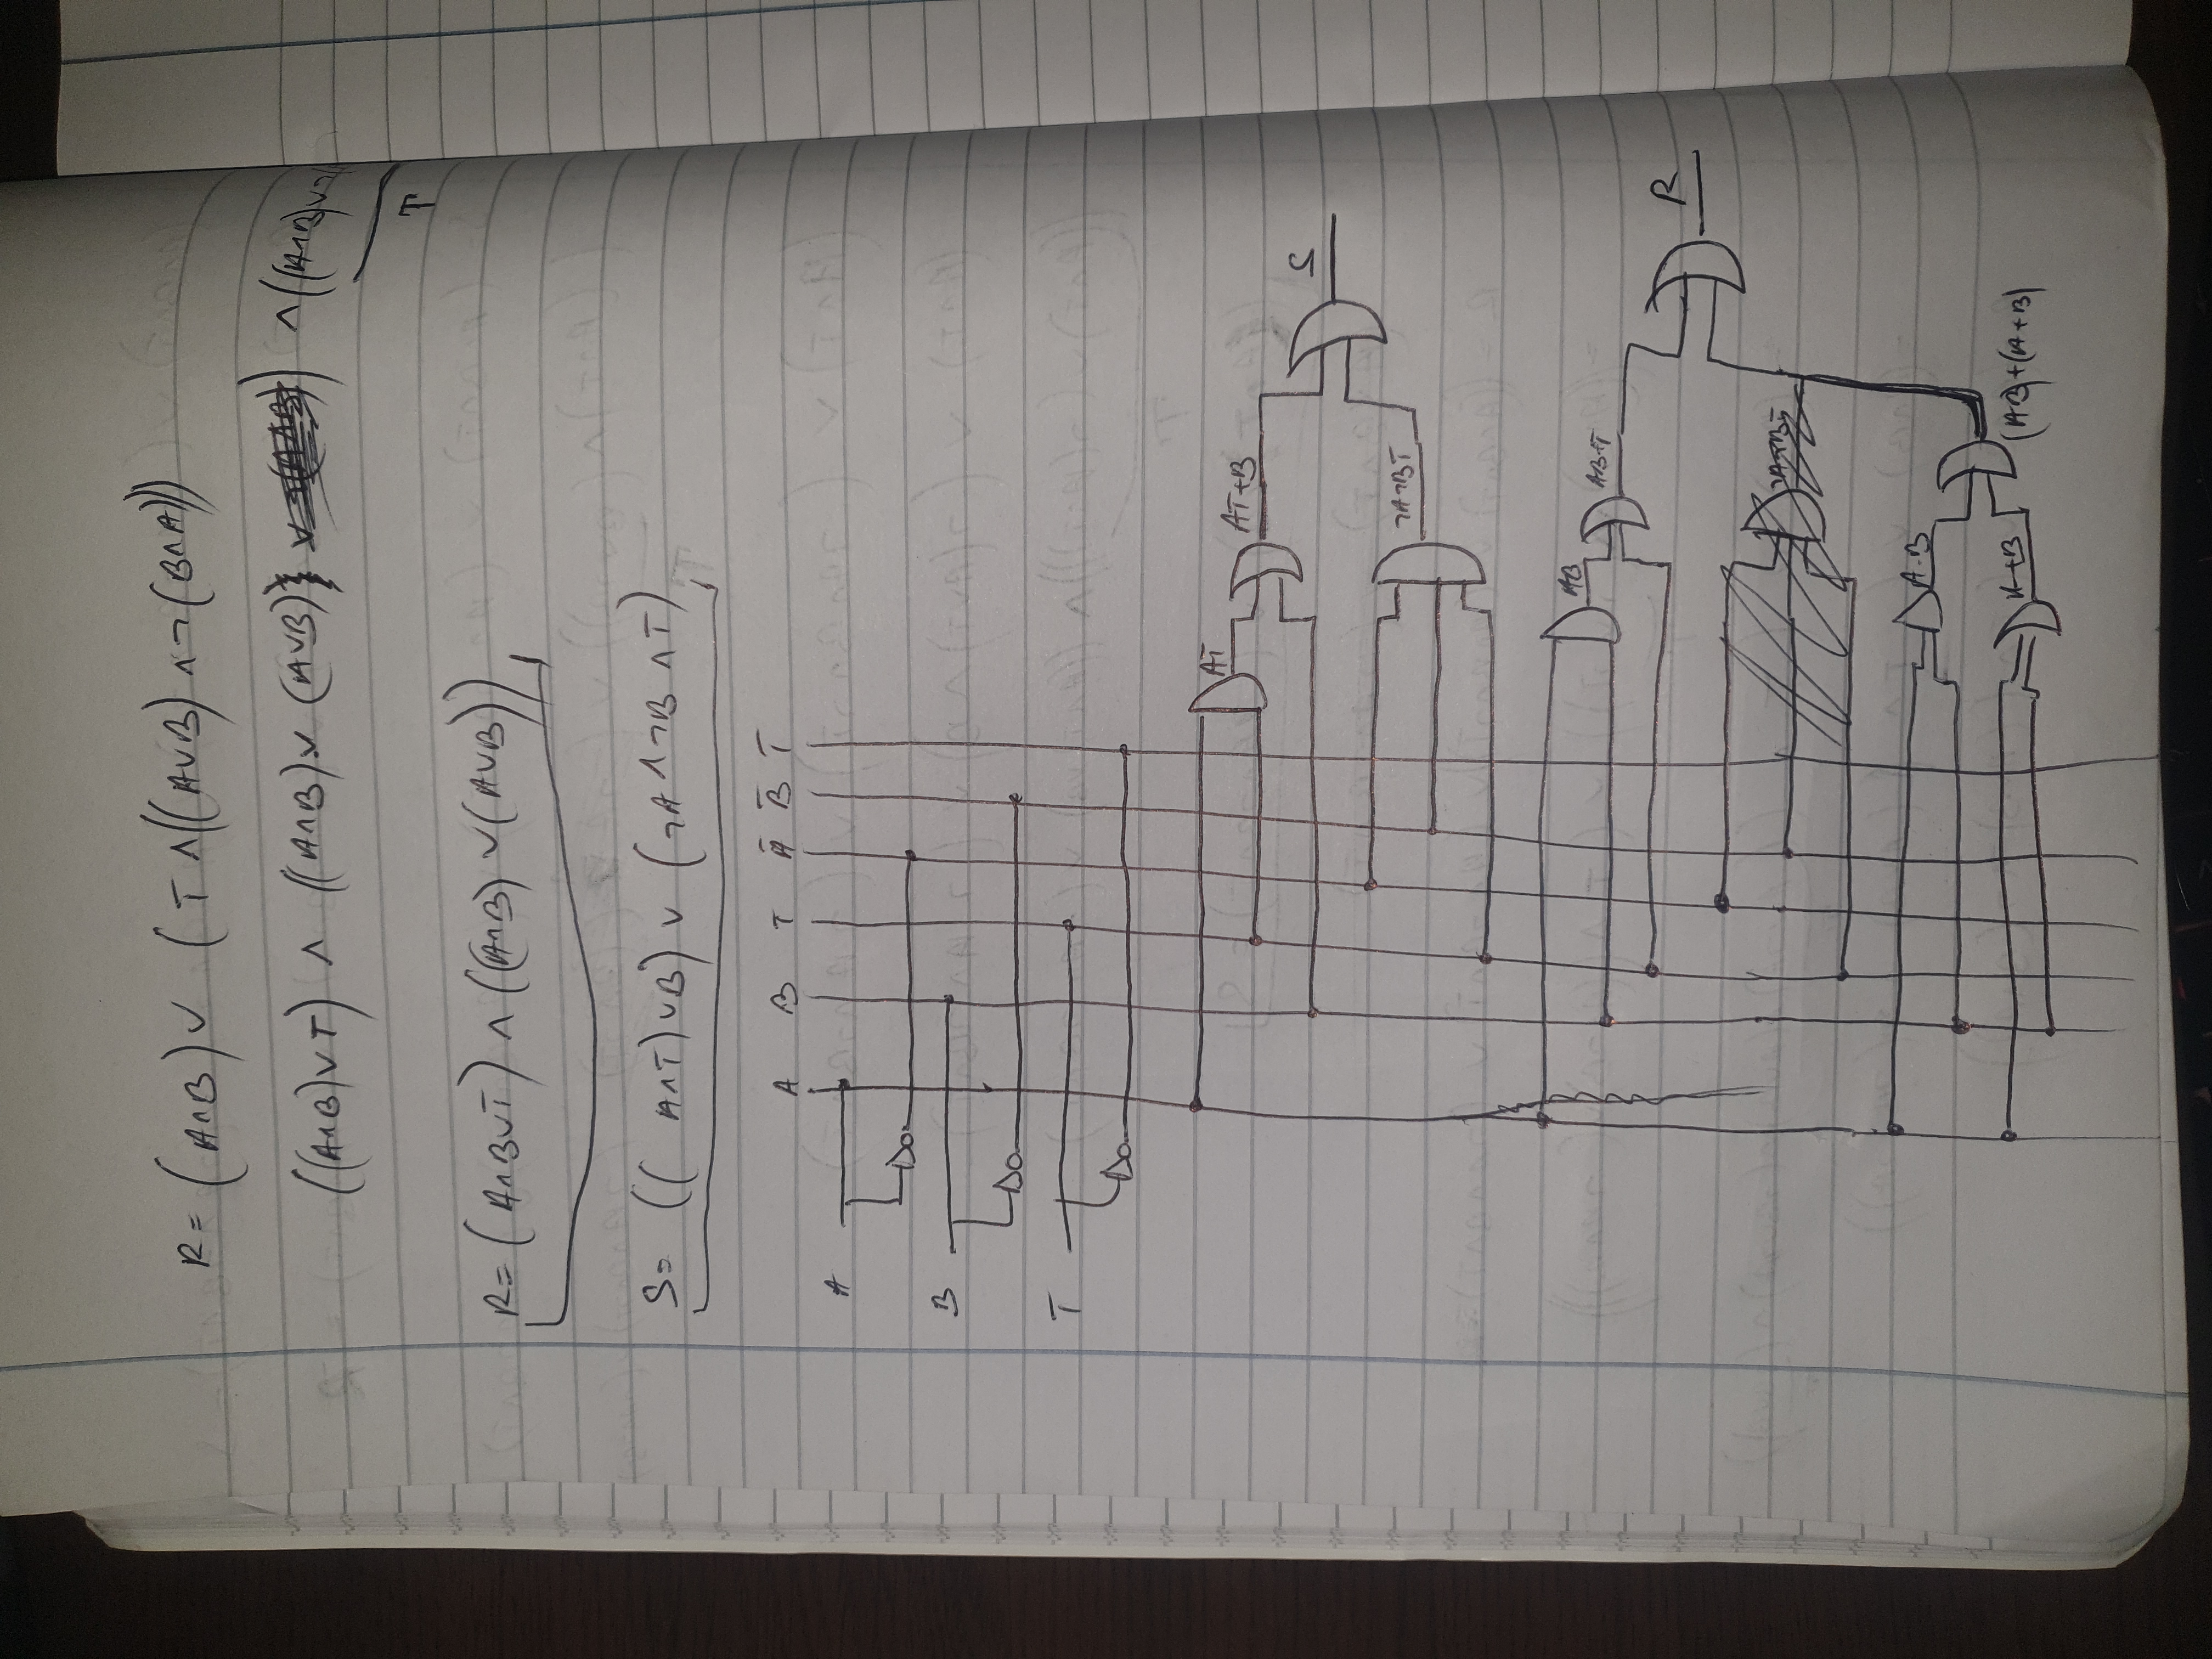 R= (A∧B) ∨ (T ∧((A∨B) ∧¬(B∧A)))
((A∧B)∨T) ∧ ((A∧B)∨ (A∨B)) ∧((A∧B)∨¬(
T
R= (A∧B∨T) ∧ ((A∧B) ∨(A∨B))
S= (( A∧T)∨B) ∨ (¬A∧¬B∧T)
A B T A̅ B̅ T̅
A
B
T
AT
AT+B
S
¬A¬BT
AB
AB+T
R
A·B
A+B
(AB)+(A+B)